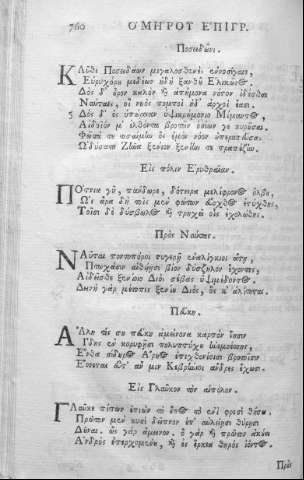 760 ΟΜΗΡΟΥ ΕΠΙΓΡ.
Ποσειδῶνι.
ΚΛῦθι Ποσείδαον μεγαλοσθενὲς ἐννοσίγαιε,
Εὐρυχόρου μεδέων ἠδὲ ξανθοῦ Ἑλικῶνος,
Δὸς δ' οὖρον καλὸν καὶ ἀπήμονα νόστον ἰδέσθαι
Ναύταις, οἳ νηὸς πομποὶ ἠδ' ἀρχοὶ ἔασι.
5 Δὸς δ' ἐς ὑπώρειαν ὑψικρήμνοιο Μίμαντος
Αἰδοίων μ' ἐλθόντα βροτῶν ὁσίων τε κυρῆσαι.
Φῶτά τε τισαίμην ὃς ἐμὸν νόον
Ζῆνα ξένιον ξενίην τε τράπεζαν.
Εἰς πόλιν Ἐρυθραίαν.
ΠΌτνια γῆ, πάνδωρε, δότειρα μελίφρονος ὄλβου,
Ὡς ἄρα δὴ τοῖς μὲν φωτῶν εὔοχθος ἐτύχθης,
Τοῖσι δὲ δύσβωλος καὶ τρηχεῖ' οἷς ἐχολώθης.
Πρὸς Ναύτας.
ΝΑῦται ποντοπόροι στυγερῇ ἐναλίγκιοι ἄτῃ,
Πτωκάσιν αἰθυίῃσι βίον δύσζηλον ἔχοντες,
Αἰδεῖσθε ξενίοιο Διὸς σέβας ὑψιμέδοντος.
Δεινὴ γὰρ μέτοπις ξενίου Διὸς, ὅς κ' ἀλίτηται.
Πεύκῃ.
ΑΛλη τίς σευ πεύκη ἀμείνονα καρπὸν ἵησιν
Ἴδης ἐν κορυφῇσι πολυπτύχου ἠνεμοέσσης,
Ἔνθα σίδηρος Ἄρηος ἐπιχθονίοισι βροτοῖσιν
Ἔσσεται, εὖτ' ἄν μιν Κεβρήνιοι ἄνδρες ἔχωσι.
Εἰς Γλαῦκον τὸν αἰπόλον.
ΓΛαῦκε ἔπος ἐνὶ φρεσὶ θήσω.
Πρῶτον μὲν κυσὶ δεῖπνον ἐπ' αὐλείῃσι θύρῃσι
Δοῦναι. ὣς γὰρ ἄμεινον. ὁ γὰρ καὶ πρῶτον ἀκούει
Ἀνδρὸς ἐπερχομένου, καὶ ἐς ἕρκεα θηρὸς ἰόντος.
Πρὸς